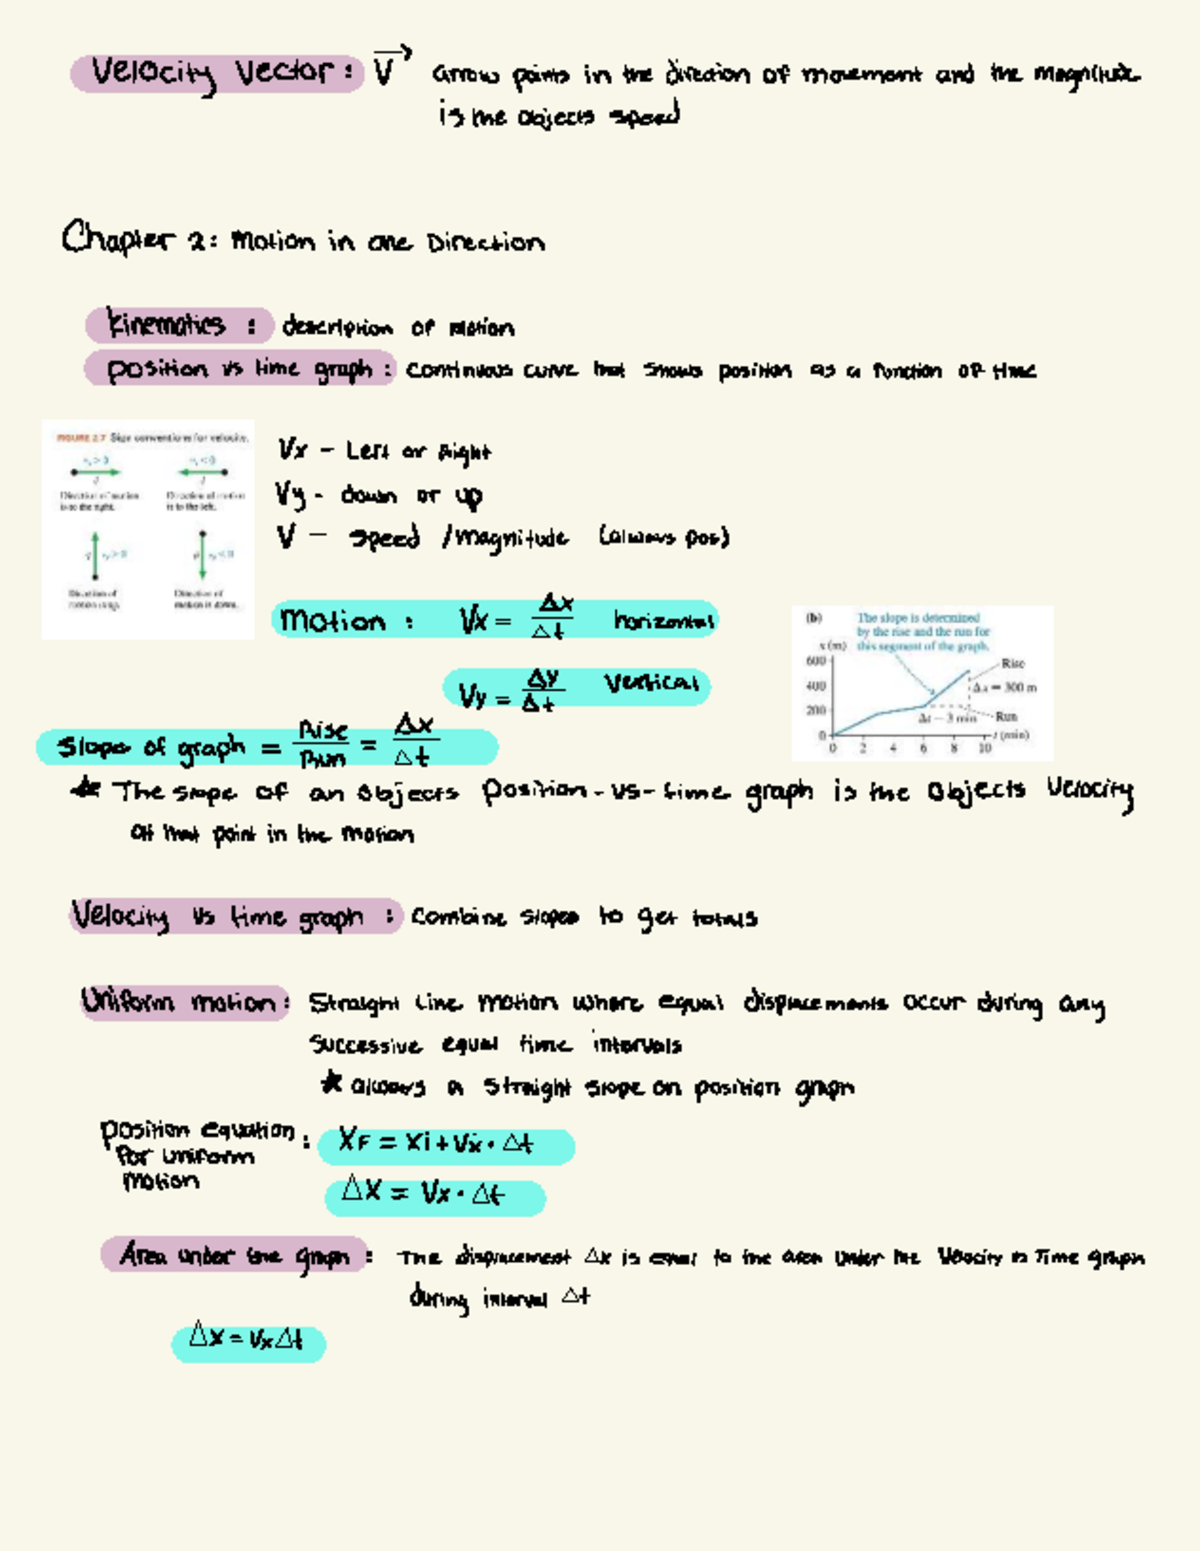 Velocity Vector: V arrow points in the direction of movement and the magnitude
is the objects speed
Chapter 2: Motion in one Direction
Kinematics: description of motion
position vs time graph: continuous curve that shows position as a function of time
FIGURE 2.7 Sign conventions for velocity.
vₓ > 0
vₓ < 0
Direction of motion
is to the right.
Direction of motion
is to the left.
Direction of
motion is up.
Direction of
motion is down.
Vx - Left or Right
Vy - down or up
V - speed / magnitude (always pos)
Motion: Vx = Δx/Δt horizontal
Vy = Δy/Δt Vertical
(b) The slope is determined
by the rise and the run for
this segment of the graph.
x (m)
600
400
200
0
Rise
Δx = 300 m
Δt = 3 min
Run
t (min)
0 2 4 6 8 10
Slope of graph = Rise/Run = Δx/Δt
* The slope of an objects position-vs-time graph is the objects velocity
at that point in the motion
Velocity vs time graph: Combine slopes to get totals
Uniform motion: Straight line motion where equal displacements occur during any
successive equal time intervals
* always a straight slope on position graph
position equation
for uniform
motion
: XF = Xi + Vx · Δt
ΔX = Vx · Δt
Area under the graph: The displacement Δx is equal to the area under the Velocity vs Time graph
during interval Δt
Δx = VxΔt